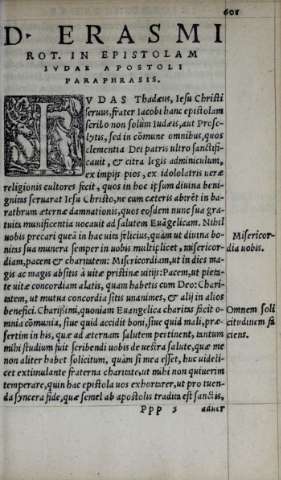 601
D. ERASMI
ROT. IN EPISTOLAM
IVDAE APOSTOLI
PARAPHRASIS.
IVDAS Thadæus, Iesu Christi
seruus, frater Iacobi hanc epistolam
scribo non solùm Iudæis, aut Prose-
lytis, sed in cõmune omnibus, quos
clementia Dei patris ultro sanctifi-
cauit, & citra legis adminiculum,
ex impijs pios, ex idololatris ueræ
religionis cultores fecit, quos in hoc ipsum diuina beni-
gnitas seruarat Iesu Christo, ne cum cæteris abirẽt in ba-
rathrum æternæ damnationis, quos eosdem nunc sua gra-
tuita munificentia uocauit ad salutem Euãgelicam. Nihil
uobis precari queã in hac uita fęlicius, quàm ut diuina bo-
nitas sua munera semper in uobis multiplicet, misericor-
diam, pacem & charitatem: Misericordiam, ut in dies ma-
gis ac magis absitis à uitæ pristinæ uitijs: Pacem, ut pieta-
te uitæ concordiam alatis, quam habetis cum Deo: Chari-
tatem, ut mutua concordia sitis unanimes, & alij in alios
benefici. Charissimi, quoniam Euangelica charitas facit o-
mnia cõmunia, siue quid accidit boni, siue quid mali, præ-
sertim in his, quæ ad æternam salutem pertinent, tantum
mihi studium fuit scribendi uobis de uestra salute, quæ me
non aliter habet solicitum, quàm si mea esset, huc uideli-
cet extimulante fraterna charitate, ut mihi non quiuerim
temperare, quin hac epistola uos exhorter, ut pro tuen-
da syncera fide, quæ semel ab apostolis tradita est sanctis,
Ppp 3
Misericor-
dia uobis.
Omnem soli
citudinem fa
ciens.